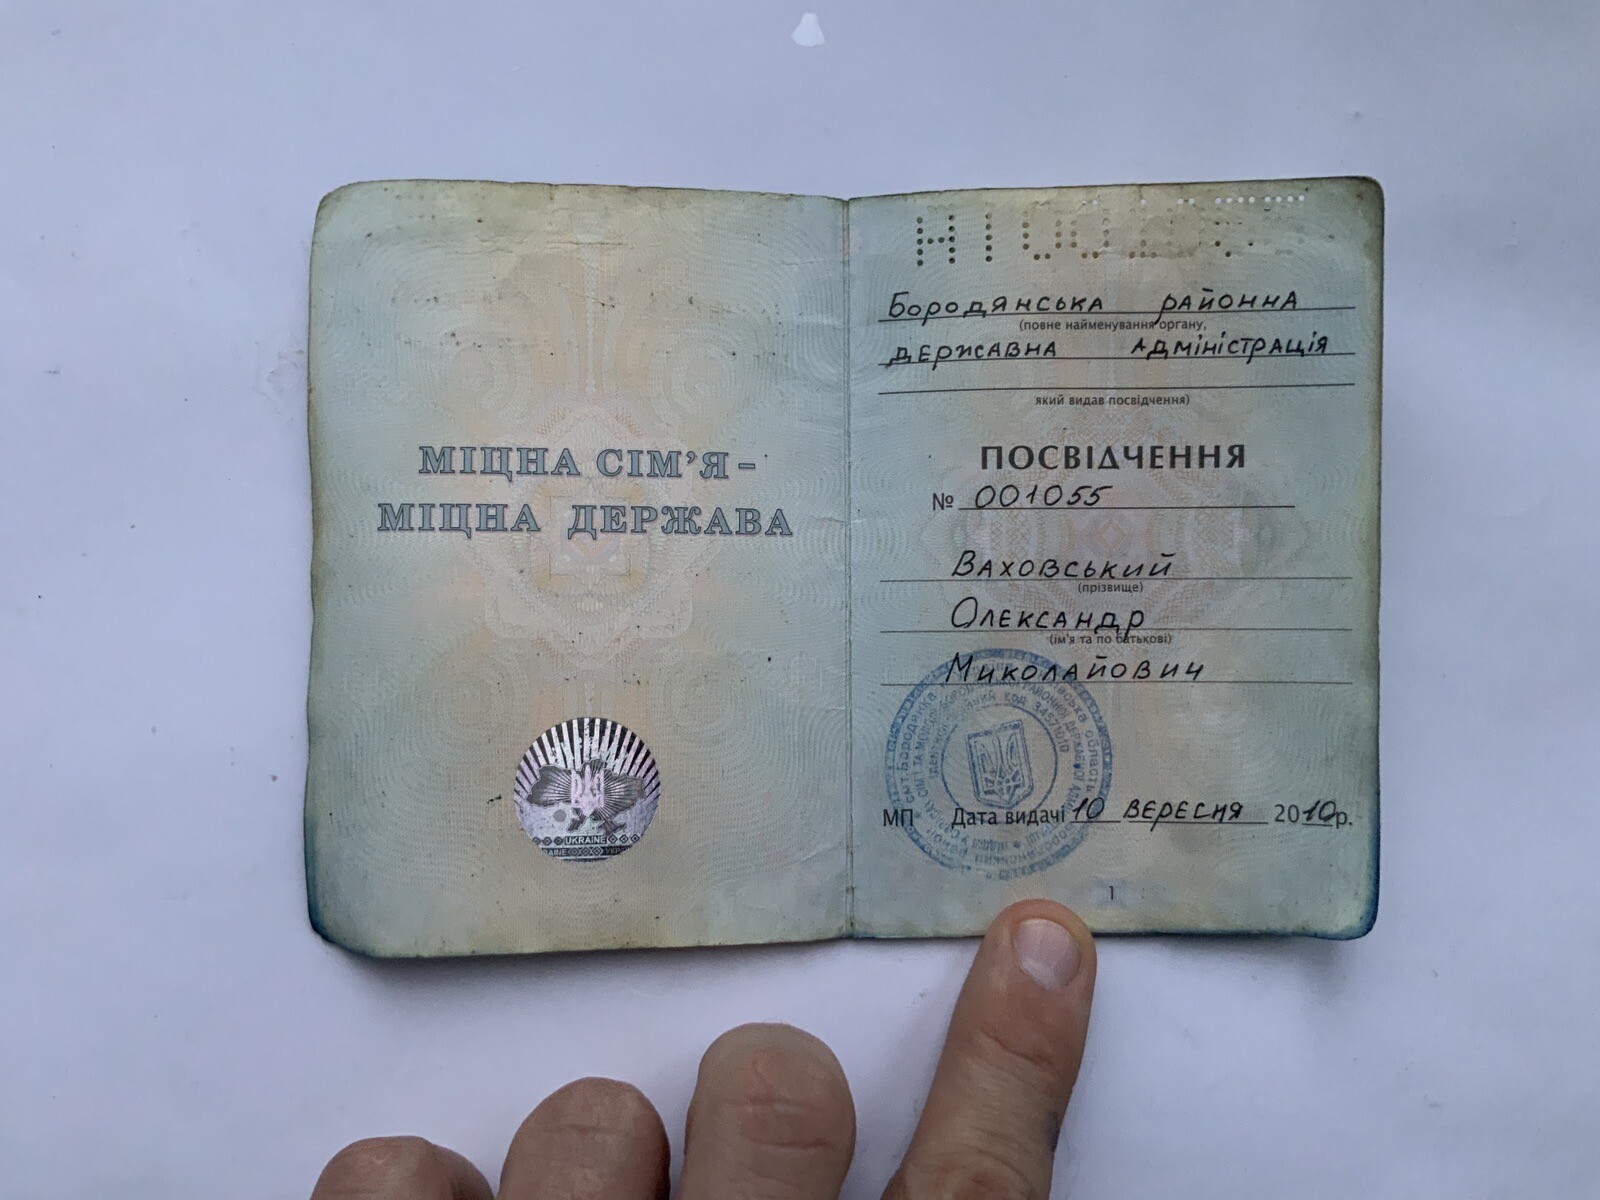 МІЦНА СІМ'Я –
МІЦНА ДЕРЖАВА
UKRAINE
Бородянська районна
(повне найменування органу,
державна адміністрація
який видав посвідчення)
ПОСВІДЧЕННЯ
№ 001055
Ваховський
(прізвище)
Олександр
(ім'я та по батькові)
Миколайович
МП Дата видачі 10 вересня 2010р.
1